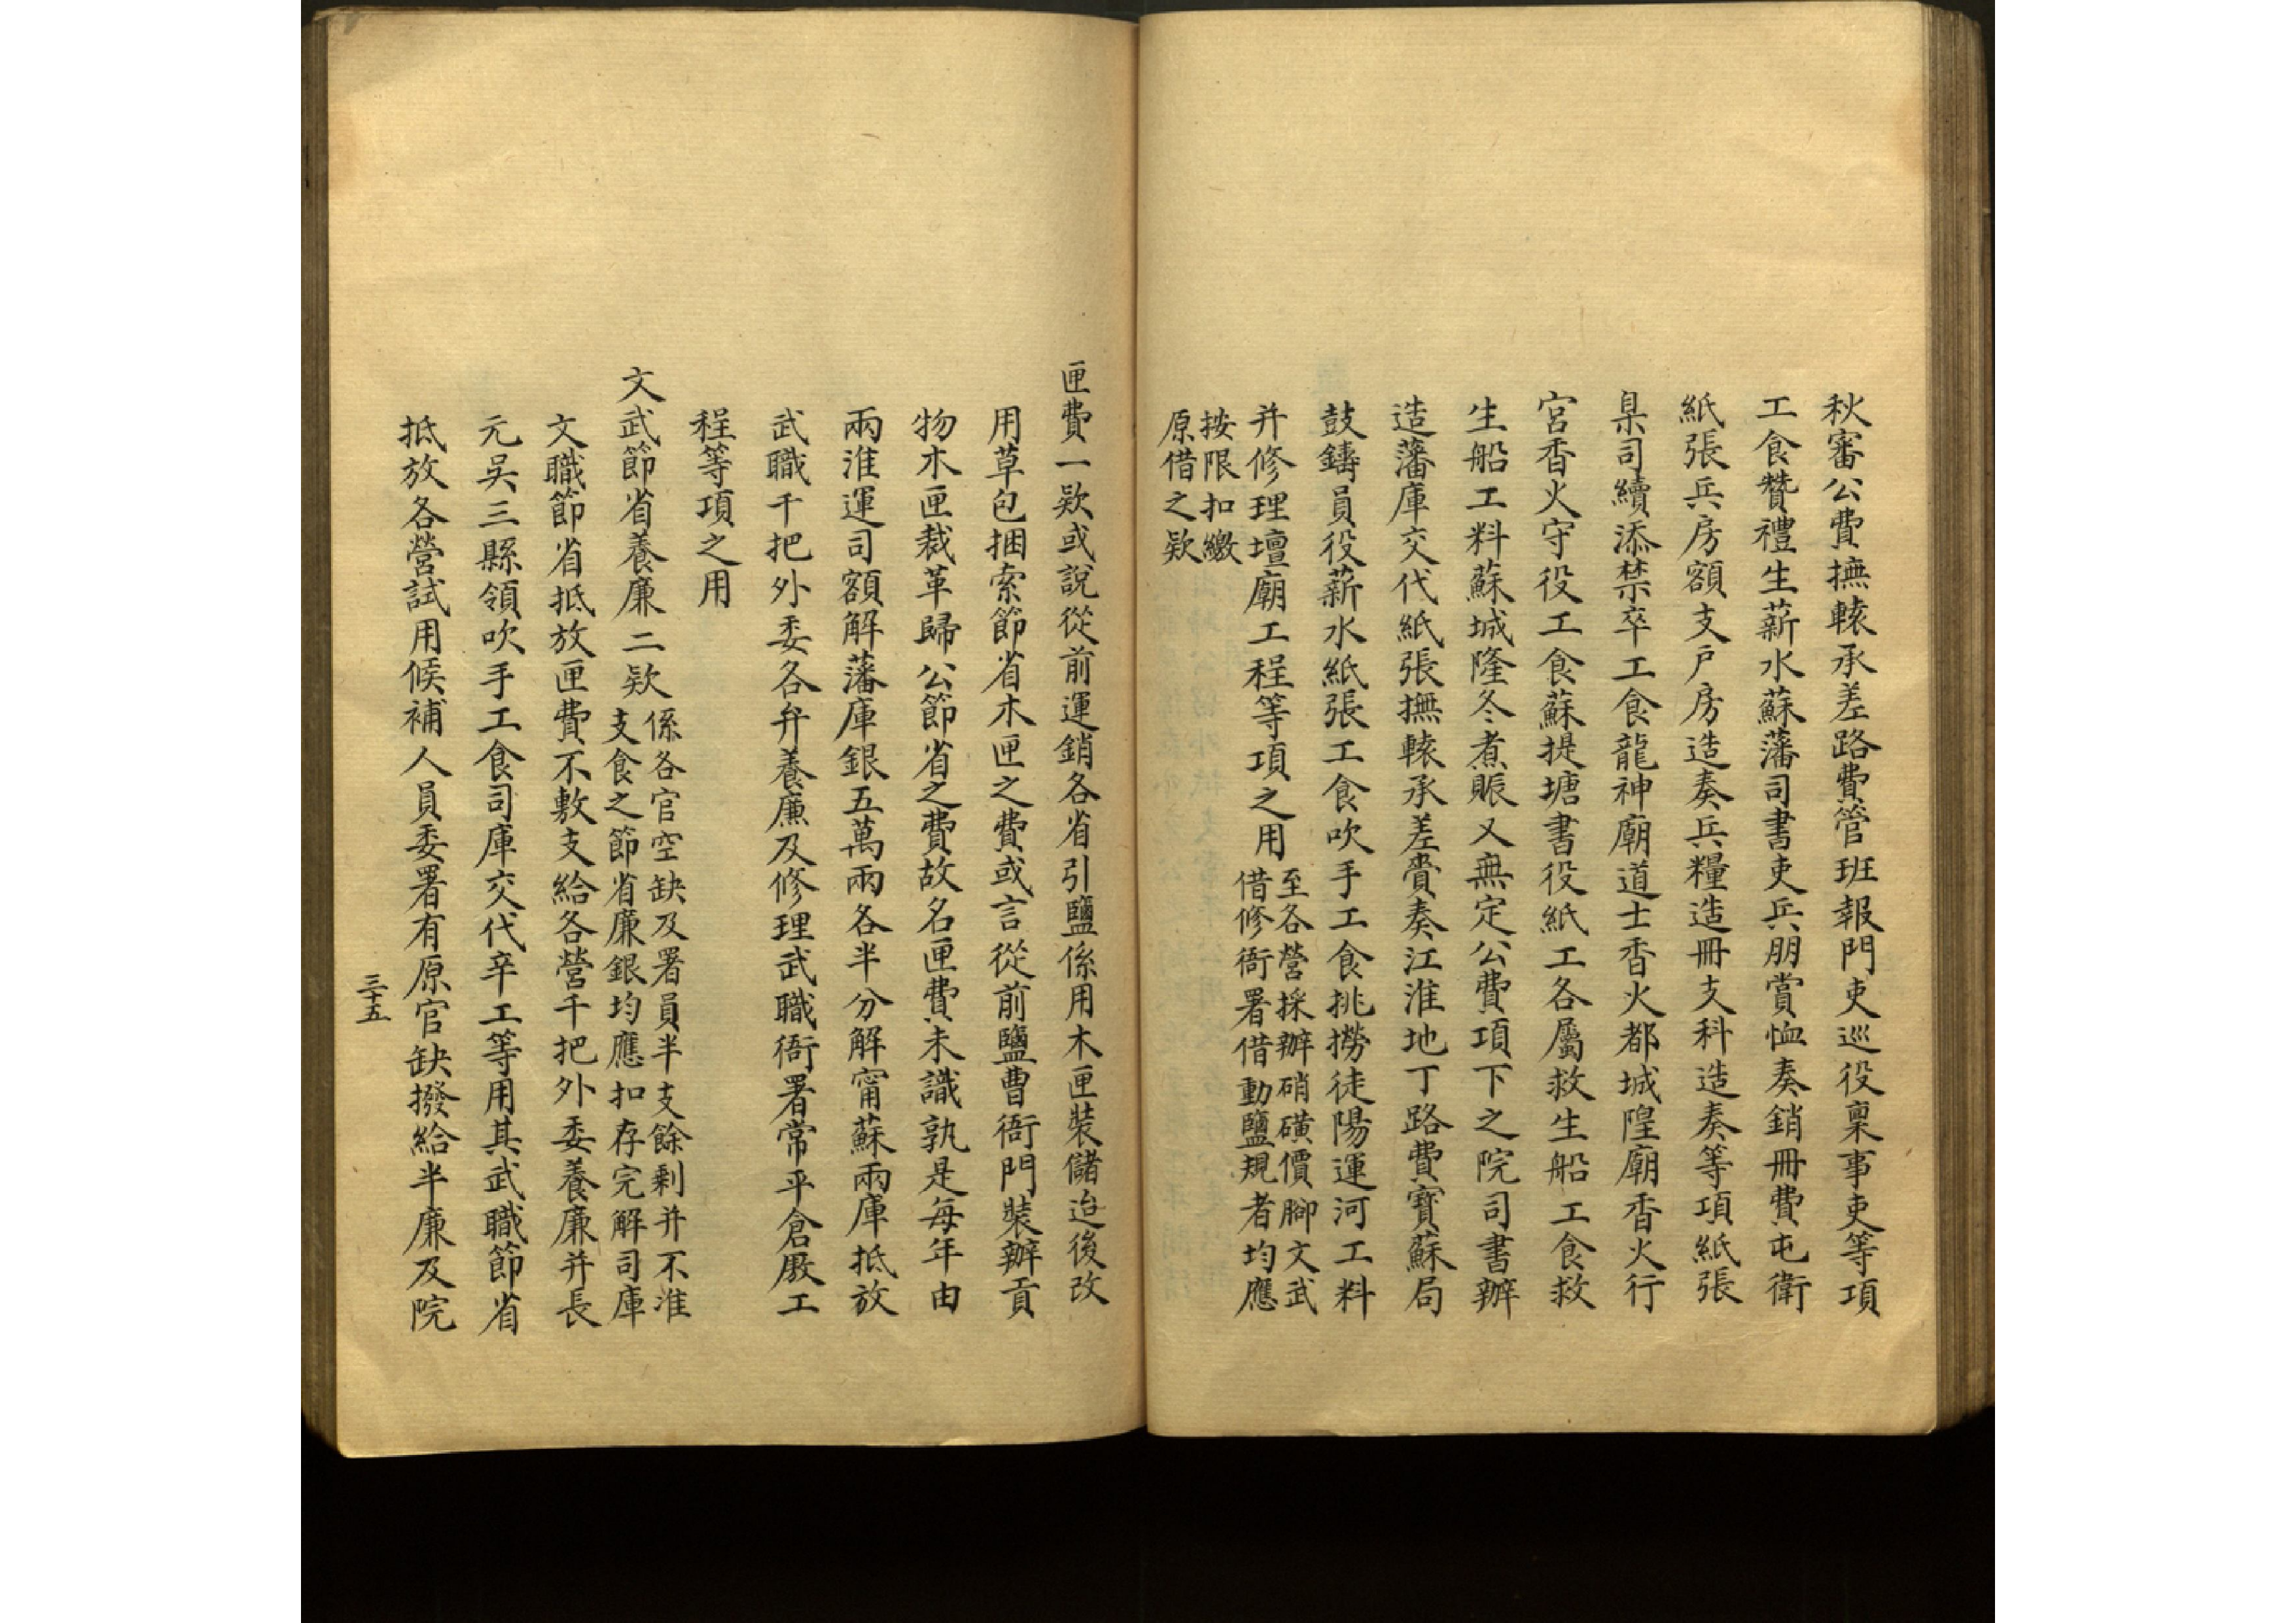 秋審公費撫轅承差路費管班報門吏巡役稟事吏等項
工食贊禮生薪水蘇藩司書吏兵朋賞恤奏銷冊費屯衛
紙張兵房額支戶房造奏兵糧造冊支科造奏等項紙張
臬司續添禁卒工食龍神廟道士香火都城隍廟香火行
宮香火守役工食蘇提塘書役紙工各屬救生船工食救
生船工料蘇城隆冬煮賑又無定公費項下之院司書辦
造藩庫交代紙張撫轅承差賫奏江淮地丁路費寳蘇局
鼓鑄員役薪水紙張工食吹手工食挑撈徒陽運河工料
并修理壇廟工程等項之用
至各營採辦硝磺價腳文武
借修衙署借動鹽規者均應
按限扣繳
原借之欵
匣費一欵或說從前運銷各省引鹽係用木匣裝儲迨後改
用草包捆索節省木匣之費或言從前鹽曹衙門裝辦貢
物木匣裁革歸公節省之費故名匣費未識孰是每年由
兩淮運司額解藩庫銀五萬兩各半分解甯蘇兩庫抵放
武職千把外委各弁養廉及修理武職衙署常平倉廒工
程等項之用
文武節省養廉二欵
係各官空缺及署員半支餘剩并不准
支食之節省廉銀均應扣存完解司庫
文職節省抵放匣費不敷支給各營千把外委養廉并長
元吳三縣領吹手工食司庫交代辛工等用其武職節省
抵放各營試用候補人員委署有原官缺撥給半廉及院
三十五